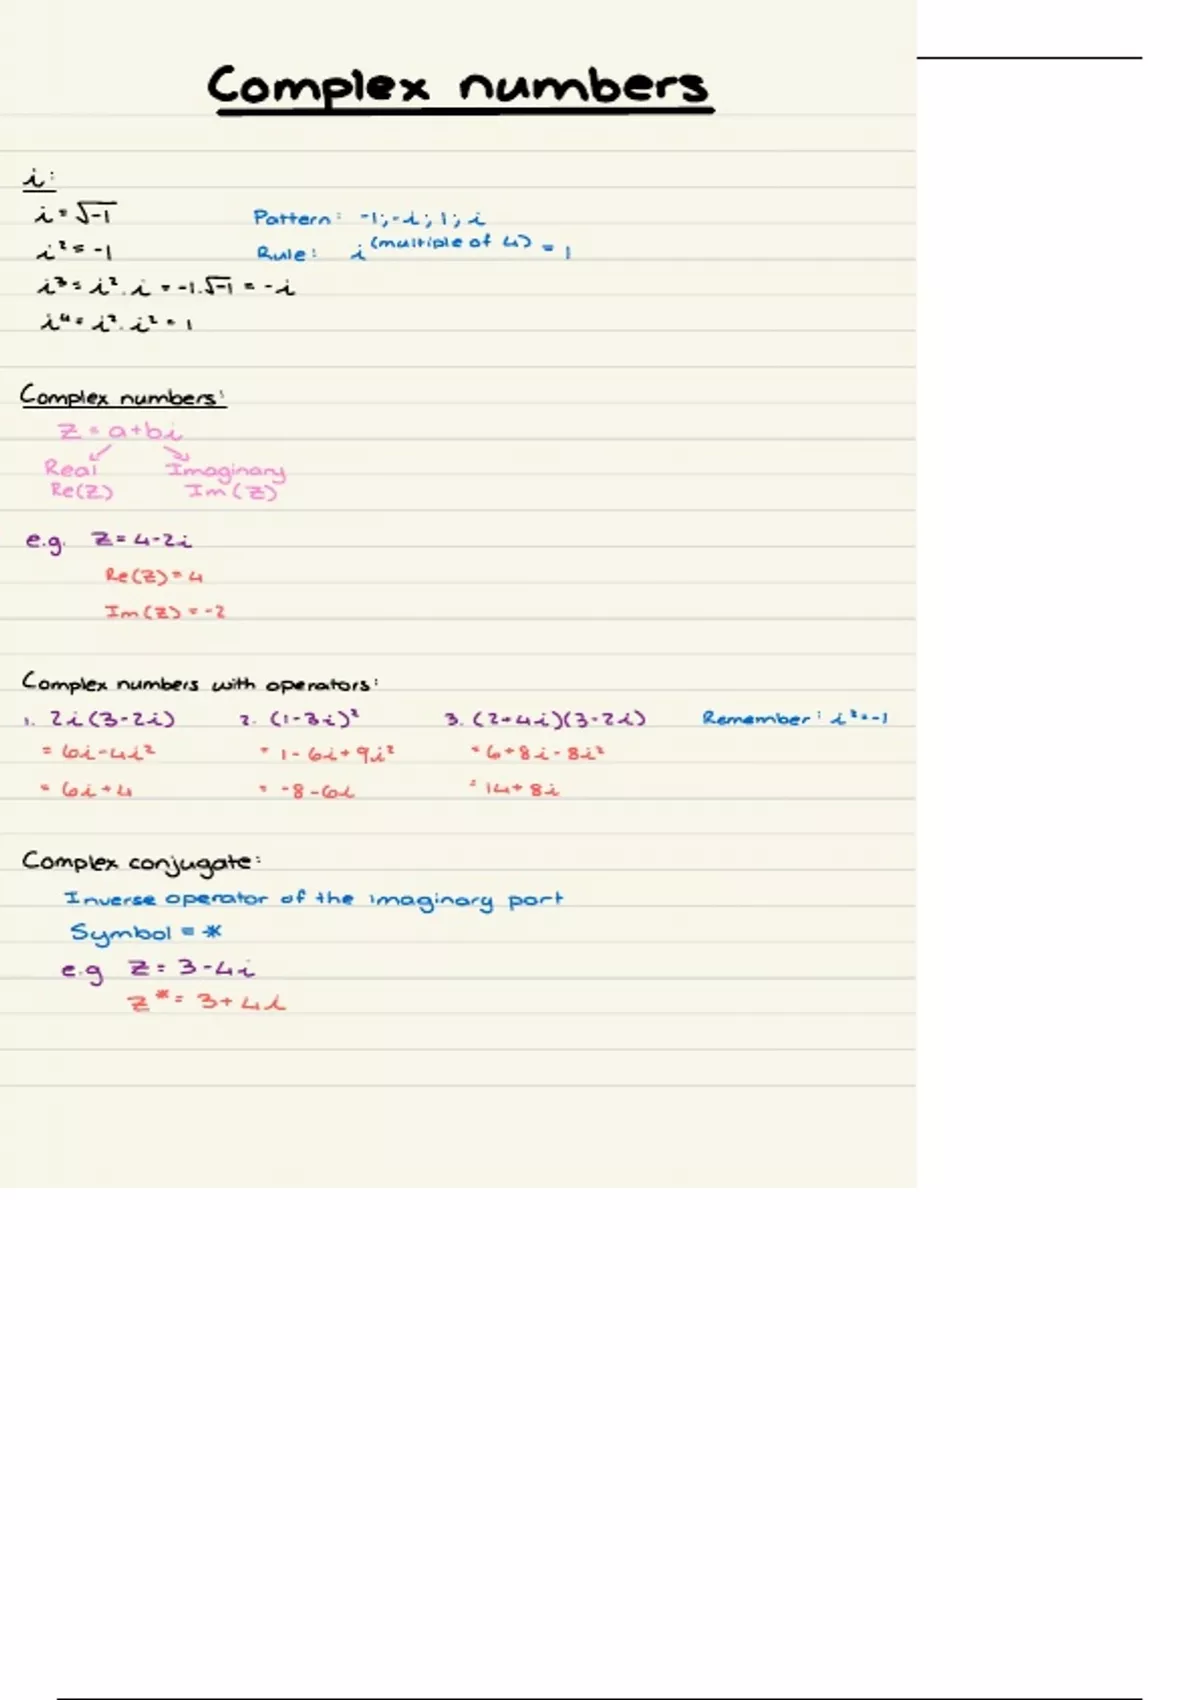 Complex numbers
i:
i = √-1 Pattern: -1; -i; 1; i
i² = -1 Rule: i^(multiple of 4) = 1
i³ = i².i = -1.√-1 = -i
i⁴ = i².i² = 1
Complex numbers:
Z = a+bi
Real Imaginary
Re(Z) Im(Z)
e.g. Z = 4-2i
Re(Z) = 4
Im(Z) = -2
Complex numbers with operators:
1. 2i(3-2i) 2. (1-3i)² 3. (2+4i)(3-2i) Remember: i²=-1
= 6i-4i² = 1-6i+9i² = 6+8i-8i²
= 6i+4 = -8-6i = 14+8i
Complex conjugate:
Inverse operator of the imaginary part
Symbol = *
e.g Z = 3-4i
Z* = 3+4i